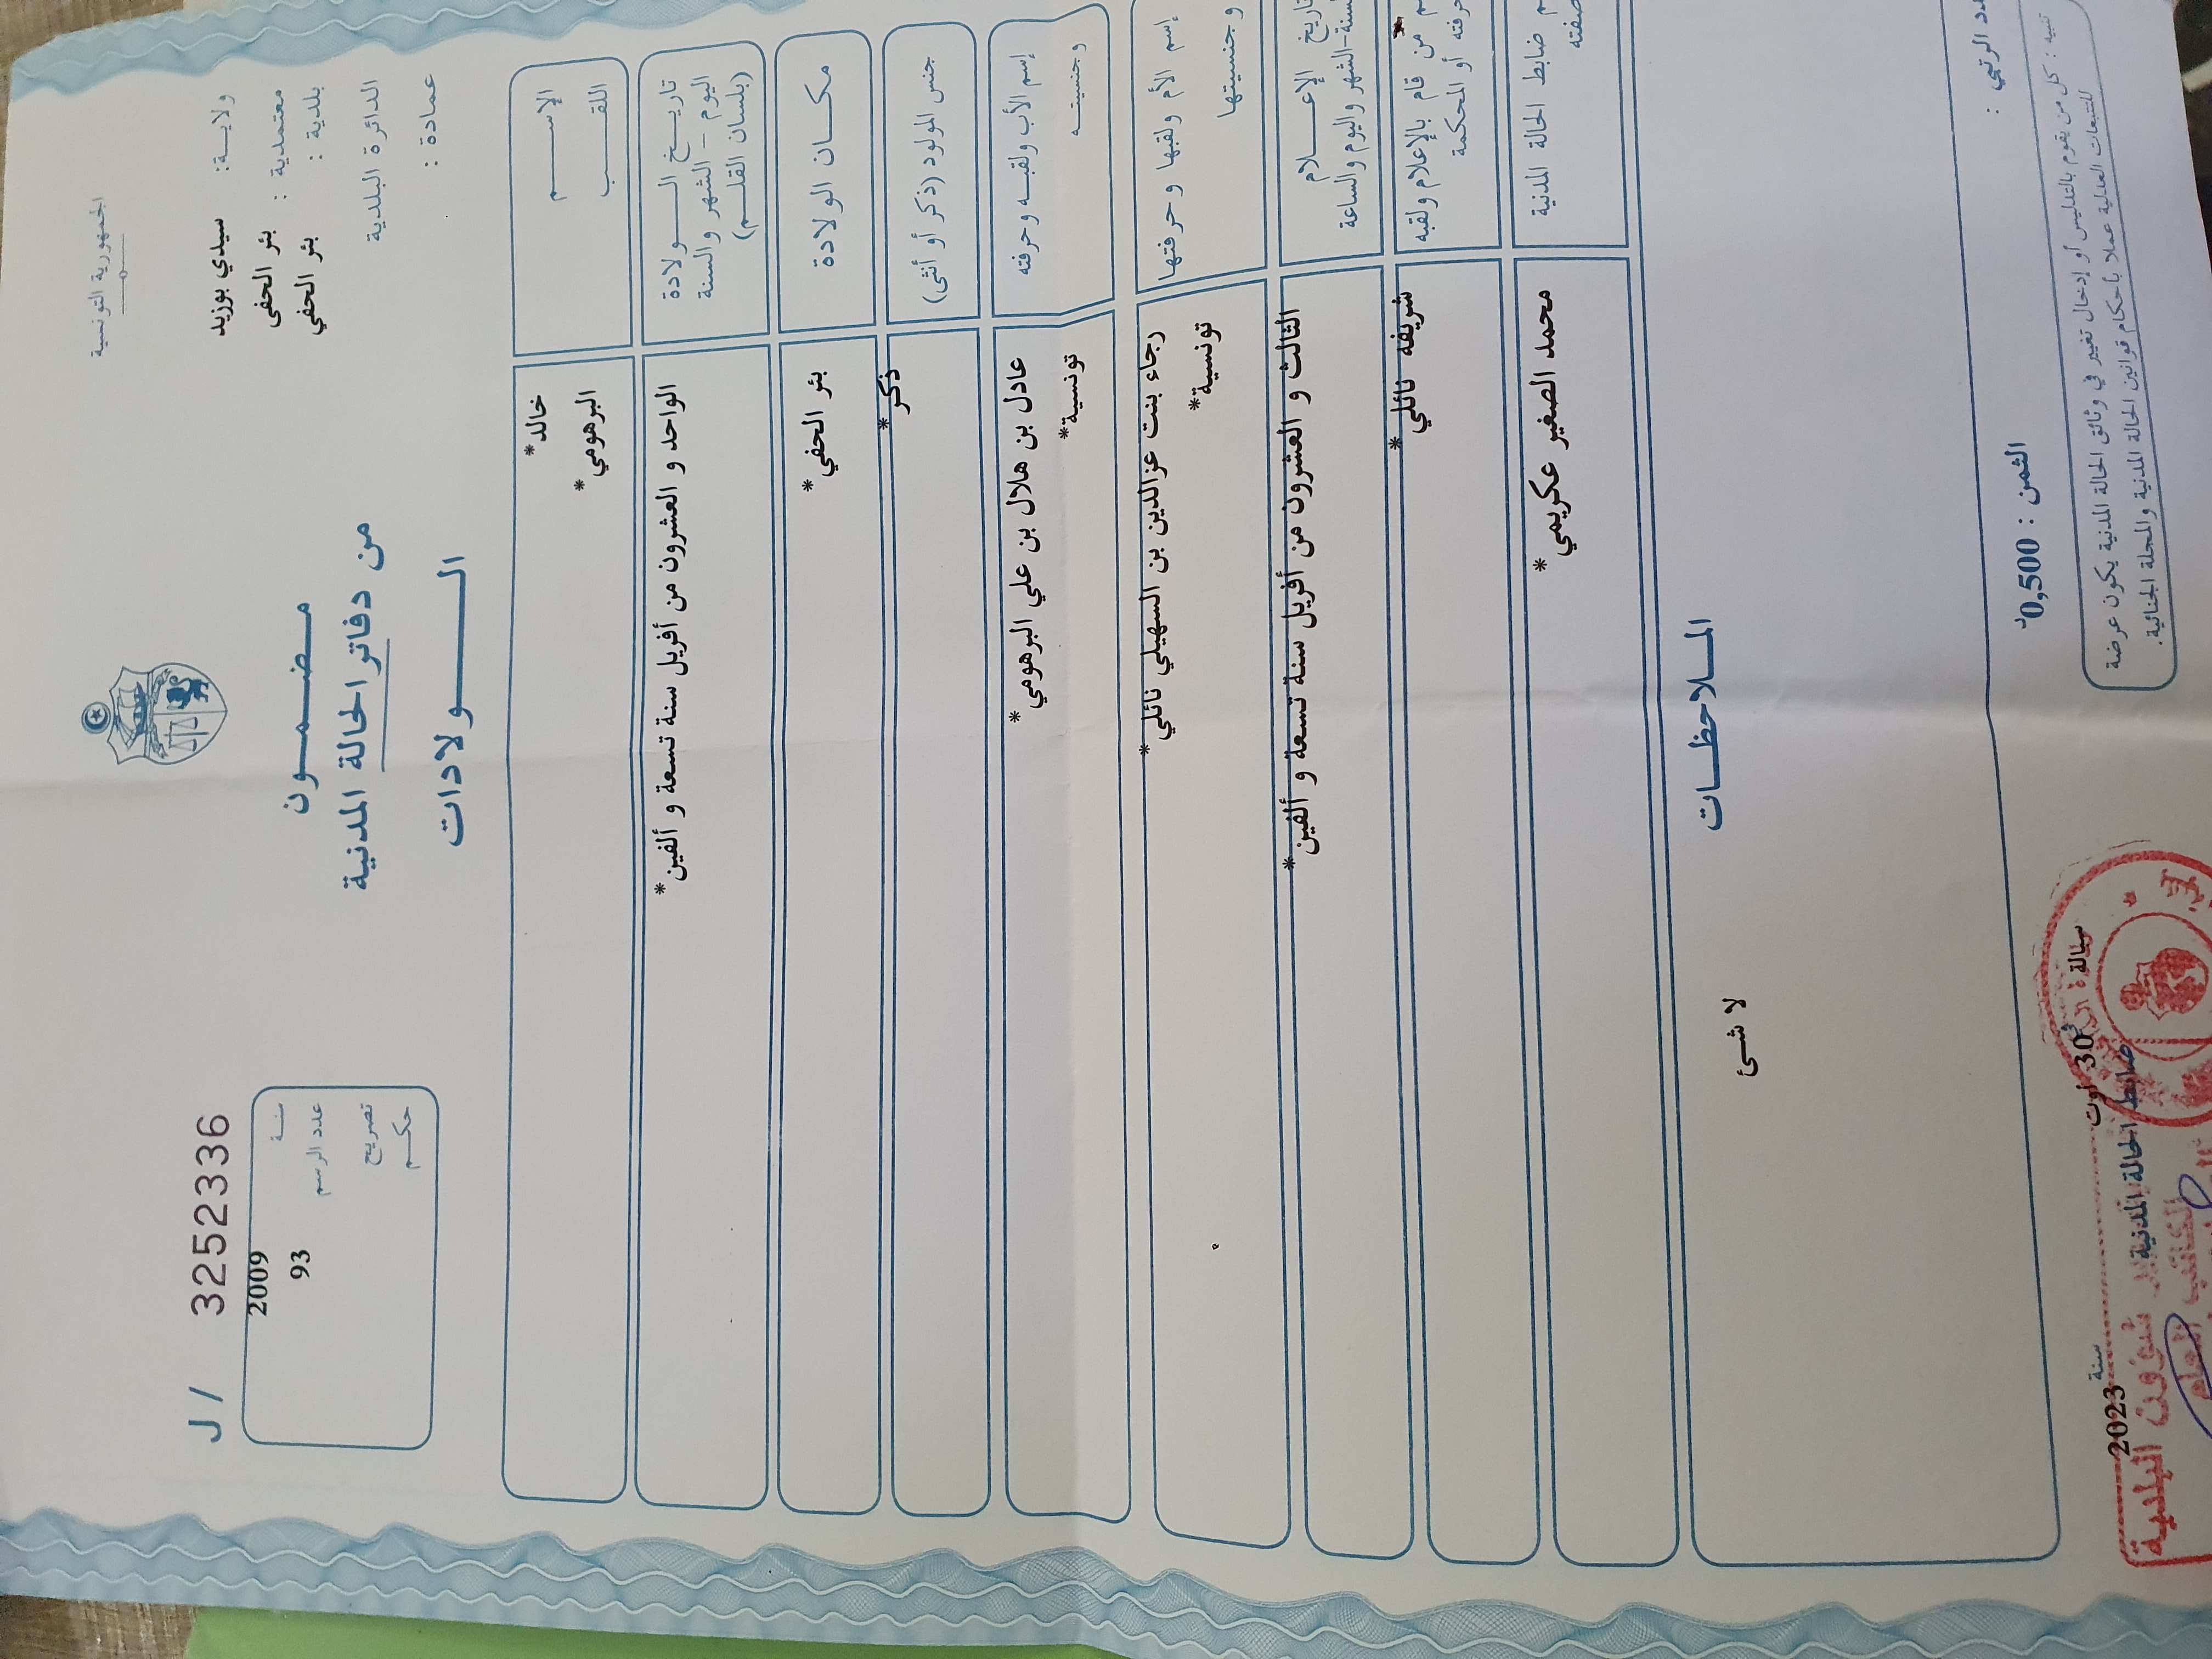 الجمهورية التونسية
ولايـة: سيدي بوزيد
معتمدية : بئر الحفي
بلدية : بئر الحفي
الدائرة البلدية
عمادة :
مـضـمـون
من دفاتر الحالة المدنية
الـولادات
J / 3252336
سنـة 2009
عدد الرسم 93
تصريح
حكـم
الإســـم خالد*
اللقـــب البرهومي*
تاريـخ الـــولادة
اليوم - الشهر والسنة
(بلسان القلـم)
الواحد و العشرون من أفريل سنة تسعة و ألفين*
مكـان الولادة بئر الحفي*
جنس المولود (ذكر أو أنثى) ذكر*
إسم الأب ولقبـه وحرفته عادل بن هلال بن علي البرهومي*
وجنسيتـه تونسية*
إسم الأم ولقبها وحرفتها رجاء بنت عزالدين بن السهيلي نائلي*
وجنسيتها تونسية*
تاريخ الإعـلام
السنة-الشهر واليوم والساعة
الثالث و العشرون من أفريل سنة تسعة و ألفين*
من قام بالإعلام ولقبه شريفه نائلي*
حرفته أو المحكمة
ضابط الحالة المدنية محمد الصغير عكريمي*
صفته
المـلاحظـات
لا شئ
الرتبي :
الثمن : 0,500د
تنبيه : كل من يقوم بالتدليس أو إدخال تغيير في وثائق الحالة المدنية يكون عرضة
للتتبعات العدلية عملا بأحكام قوانين الحالة المدنية والمجلة الجنائية.
30 اوت سنة 2023
ضابط الحالة المدنية
شؤون البلدية
الكاتب العام